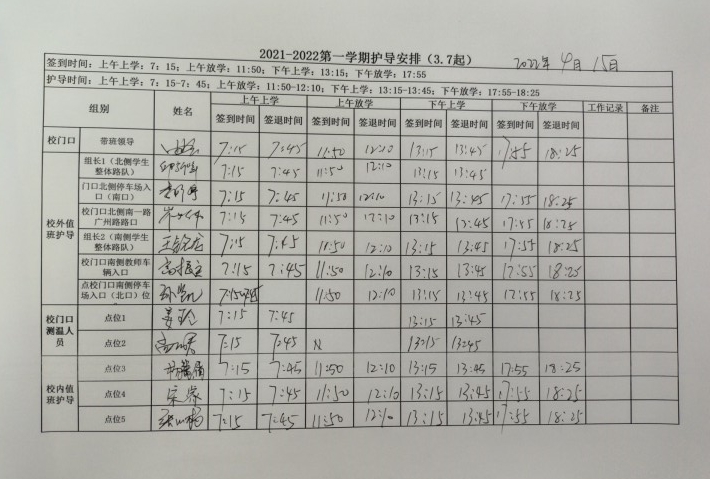 2021-2022第一学期护导安排（3.7起） 2022年4月15日
签到时间：上午上学：7：15；上午放学：11:50；下午上学：13:15；下午放学：17:55
护导时间：上午上学：7：15-7：45；上午放学：11:50-12:10；下午上学：13:15-13:45；下午放学：17:55-18:25
组别 姓名 上午上学 上午放学 下午上学 下午放学 工作记录 备注
签到时间 签退时间 签到时间 签退时间 签到时间 签退时间 签到时间 签退时间
校门口 带班领导 7:15 7:45 11:50 12:10 13:15 13:45 17:55 18:25
校外值班护导
组长1（北侧学生
整体路队） 7:15 7:45 11:50 12:10 13:15 13:45
门口北侧停车场入
口（南口） 7:15 7:45 11:50 12:10 13:15 13:45 17:55 18:25
校门口北侧南一路
广州路路口 7:15 7:45 11:50 12:10 13:15 13:45 17:55 18:25
组长2（南侧学生
整体路队） 7:15 7:45 11:50 12:10 13:15 13:45 17:55 18:25
校门口南侧教师车
辆入口 7:15 7:45 11:50 12:10 13:15 13:45 17:55 18:25
点校门口南侧停车
场入口（北口）位 7:15 11:50 12:10 13:15 13:45 17:55 18:25
校门口
测温人
员
点位1 7:15 7:45 13:15 13:45
点位2 7:15 7:45 13:15 13:45
校内值
班护导
点位3 7:15 7:45 11:50 12:10 13:15 13:45 17:55 18:25
点位4 7:15 7:45 11:50 12:10 13:15 13:45 17:55 18:25
点位5 7:15 7:45 11:50 12:10 13:15 13:45 17:55 18:25